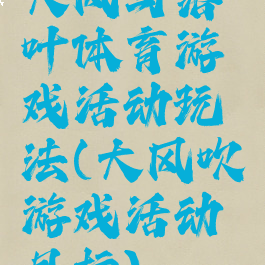 大风与落
叶体育游
戏活动玩
法(大风吹
游戏活动
目标)